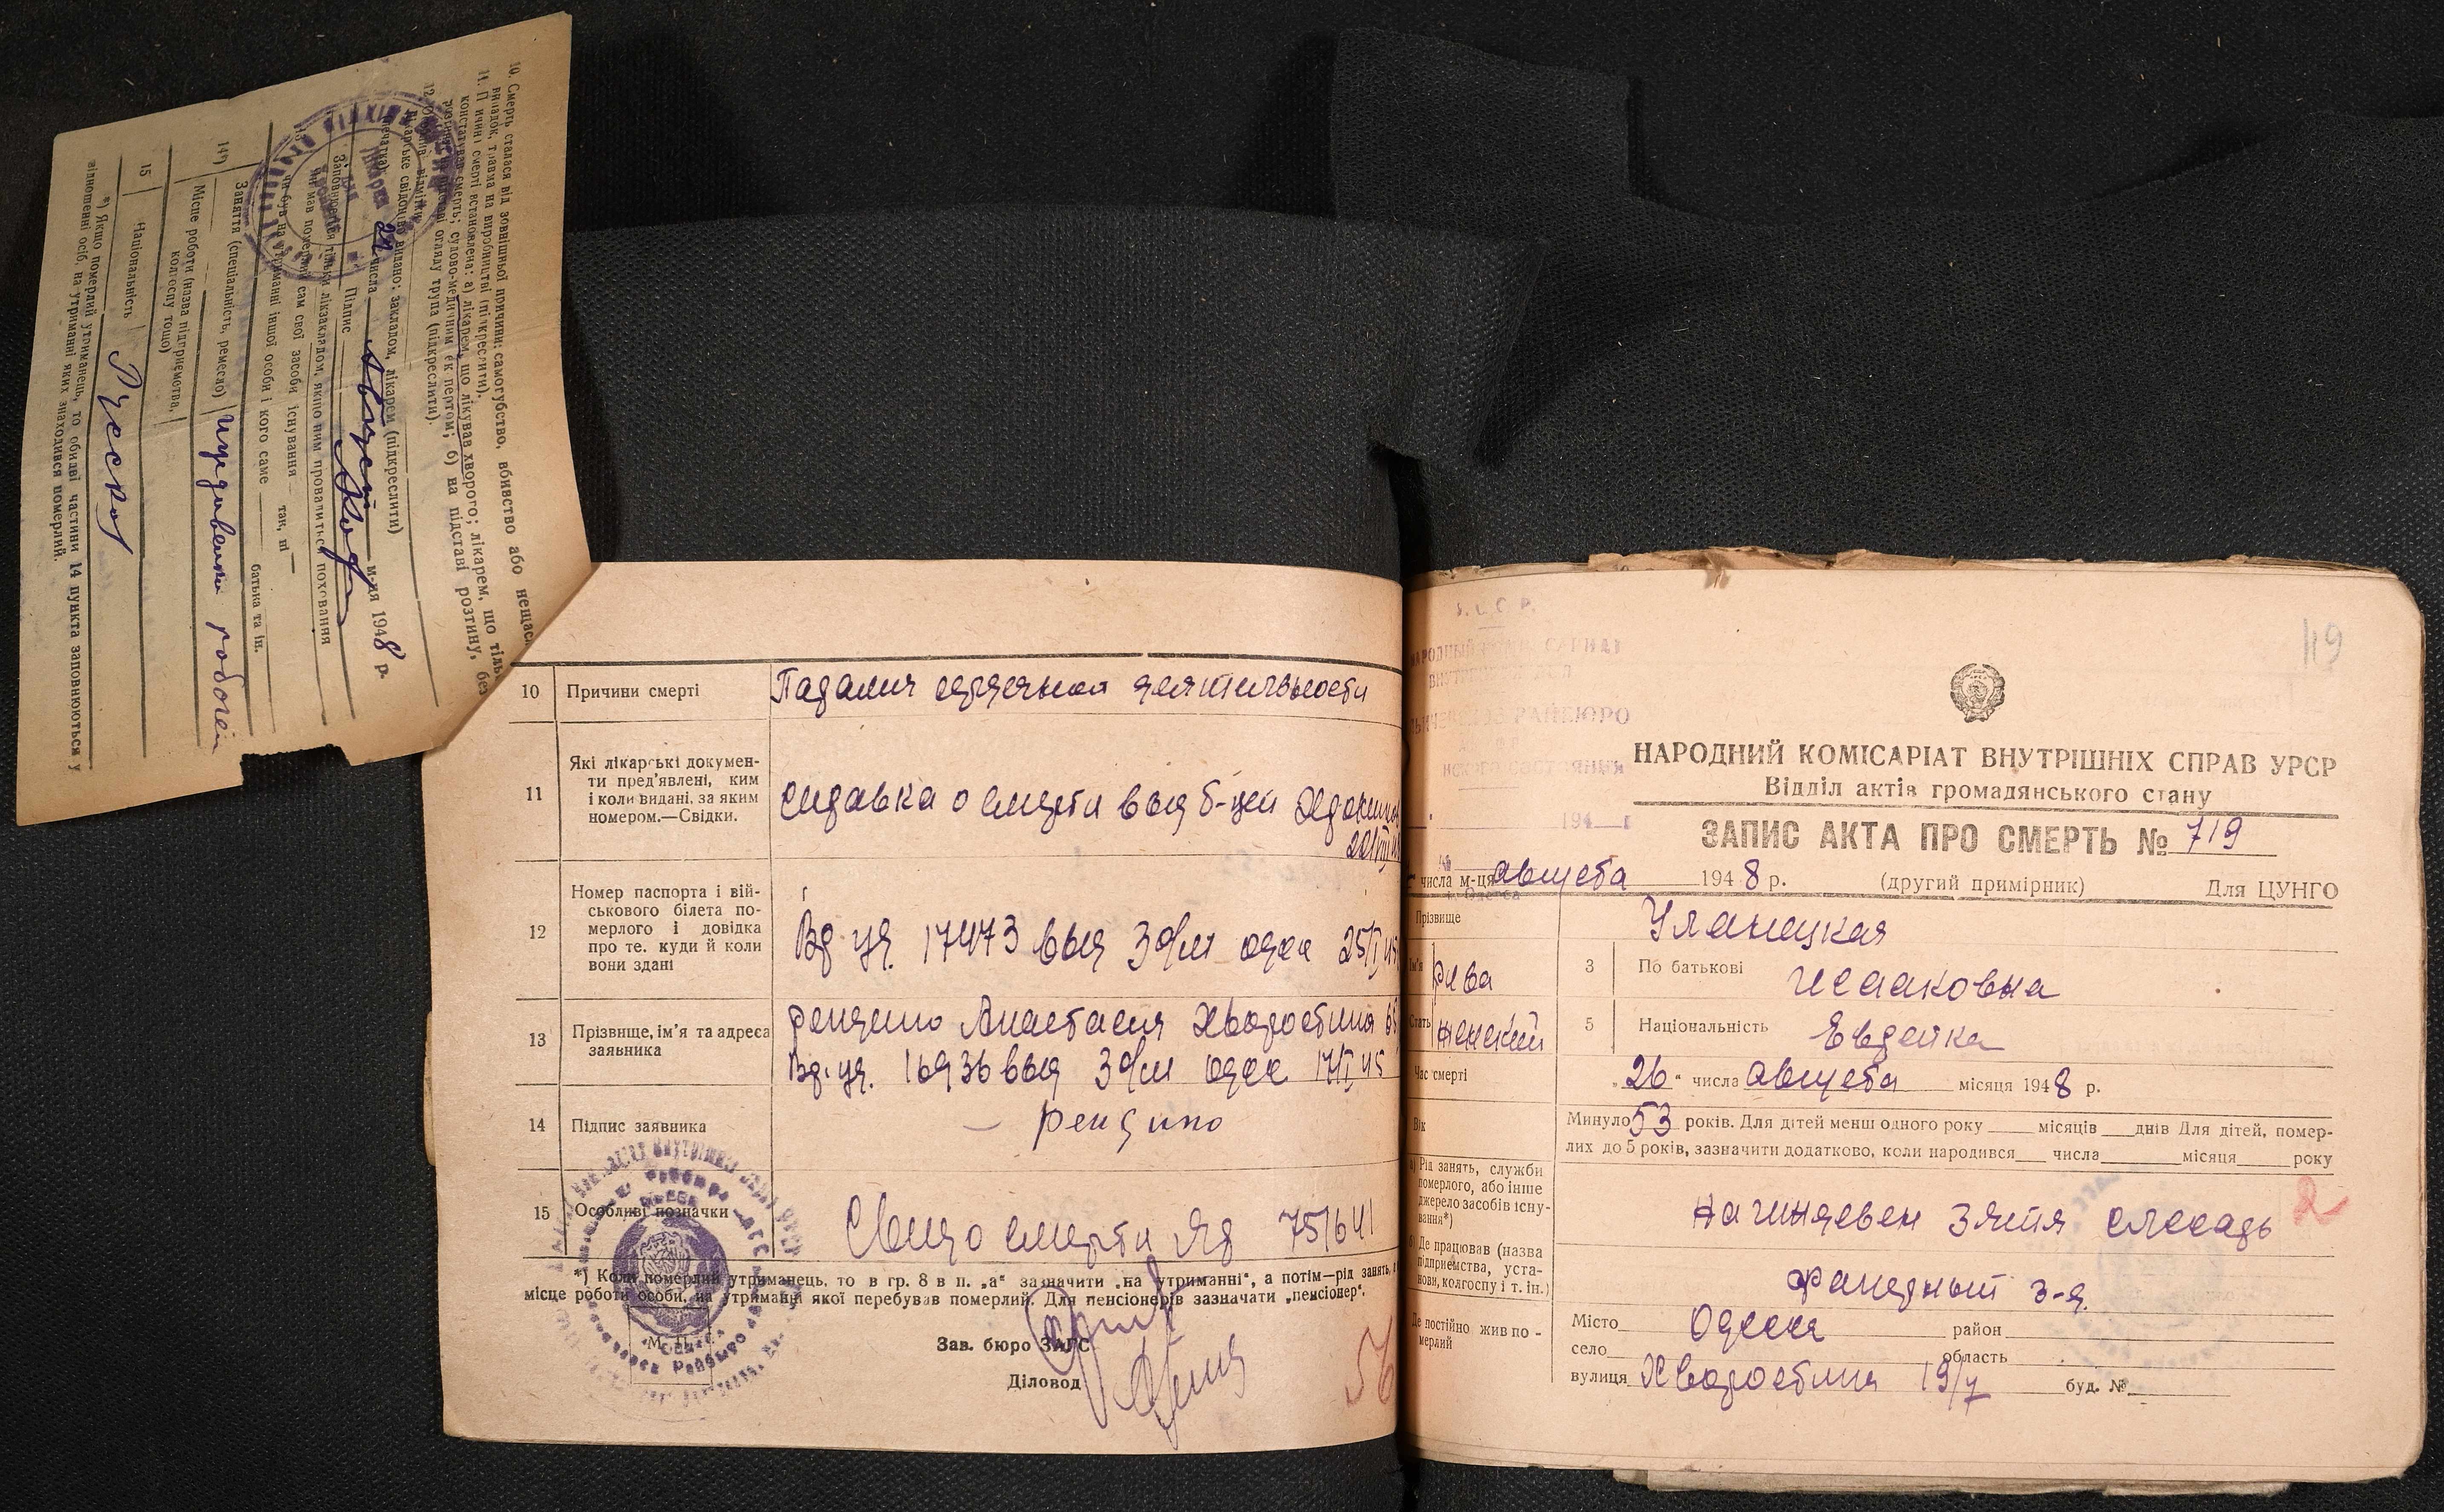 10. Смерть сталася від зовнішньої причини: самогубство, вбивство або нещасн
випадок, травма на виробництві (підкреслити).
11. Причини смерті встановлена: а) лікарем, що лікував хворого; лікарем, що тільки
констатував смерть; судово-медичним експертом; б) на підставі розтину, без
огляду трупа (підкреслити).
видано: закладом, лікарем (підкреслити)
числа Август м-ця 1948 р.
Підпис
Заповнюється тільки лікзакладом, якщо ним провадиться поховання
мав померлий сам свої засоби існування так, ні
чи був на утриманні іншої особи і кого саме батька та ін.
14*) Заняття (спеціальність, ремесло)
Місце роботи (назва підприємства,
колгоспу тощо)
15 Національність
*) Якщо померлий утриманець, то обидві частини 14 пункта заповнюються у
відношенні осіб, на утриманні яких знаходився померлий.
10 Причини смерті Падания сердечной деятельности
11 Які лікарські докумен-
ти пред'явлені, ким
і коли видані, за яким
номером.—Свідки.
справка о смерти выд б-цей
12 Номер паспорта і вій-
ськового білета по-
мерлого і довідка
про те, куди й коли
вони здані
Вр. уд. 17473 выд 3 о/м одес 25/I 45
13 Прізвище, ім'я та адреса
заявника
Анастасия Хворостина
Вр. уд. 16936 выд 3 о/м одес 17/I 45
14 Підпис заявника
15 Особливі позначки
Свид о смерти 751641
*) Коли померлий утриманець, то в гр. 8 в п. „а“ зазначити „на утриманні“, а потім—рід занять,
місце роботи особи, на утриманні якої перебував померлий. Для пенсіонерів зазначати „пенсіонер“.
М. П.
Зав. бюро ЗАГС
Діловод
56
119
НАРОДНИЙ КОМІСАРІАТ ВНУТРІШНІХ СПРАВ УРСР
Відділ актів громадянського стану
ЗАПИС АКТА ПРО СМЕРТЬ № 719
числа м-ця августа 1948 р. (другий примірник) Для ЦУНГО
Прізвище Уланицкая
Ім'я Рива 3 По батькові Исааковна
Стать женский 5 Національність Еврейка
Час смерті „26“ числа августа місяця 1948 р.
Вік Минуло 53 років. Для дітей менш одного року місяців днів Для дітей, помер-
лих до 5 років, зазначити додатково, коли народився числа місяця року
а) Рід занять, служби
померлого, або інше
джерело засобів існу-
вання*)
на иждевен зятя слесарь
2
б) Де працював (назва
підприємства, уста-
нови, колгоспу і т. ін.)
фанерный з-д.
Де постійно жив по-
мерлий
Місто Одесса район
село область
вулиця Хворостина 19/7 буд. №